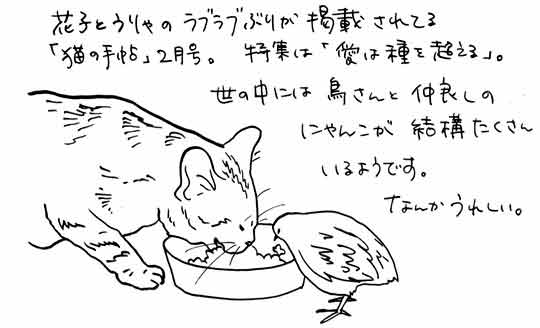 花子とうりゃのラブラブぶりが掲載されてる
「猫の手帖」2月号。特集は「愛は種を超える」。
世の中には鳥さんと仲良しの
にゃんこが結構たくさん
いるようです。
なんかうれしい。